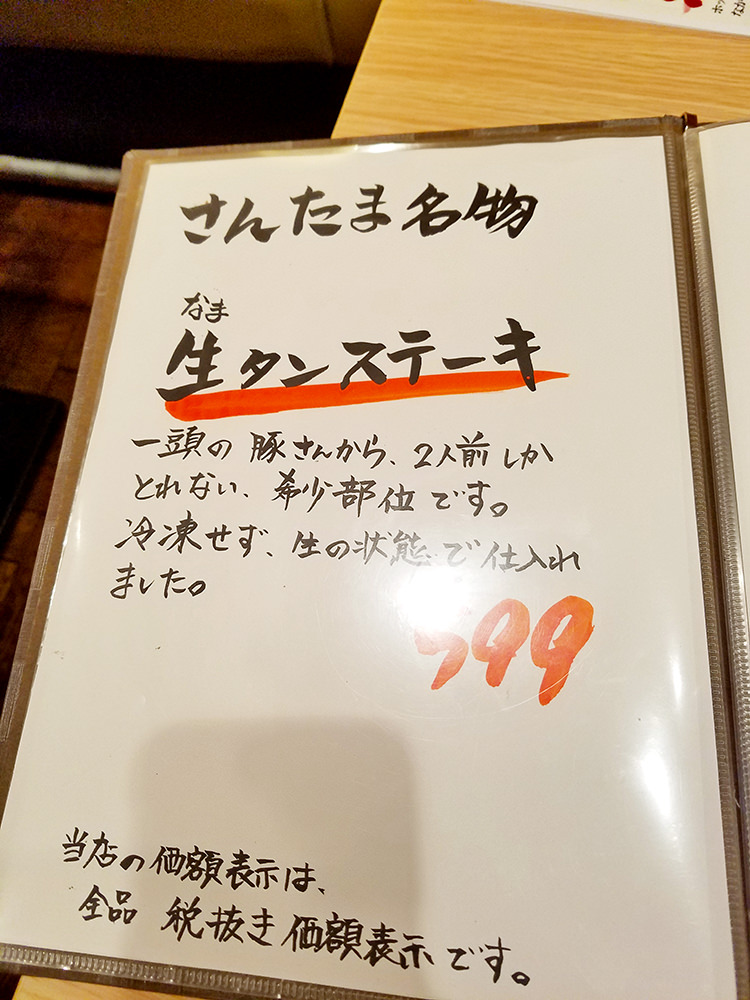 さんたま名物
なま
生タンステーキ
一頭の豚さんから、2人前しか
とれない、希少部位です。
冷凍せず、生の状態で仕入れ
ました。
当店の価額表示は、
全品 税抜き価額表示です。